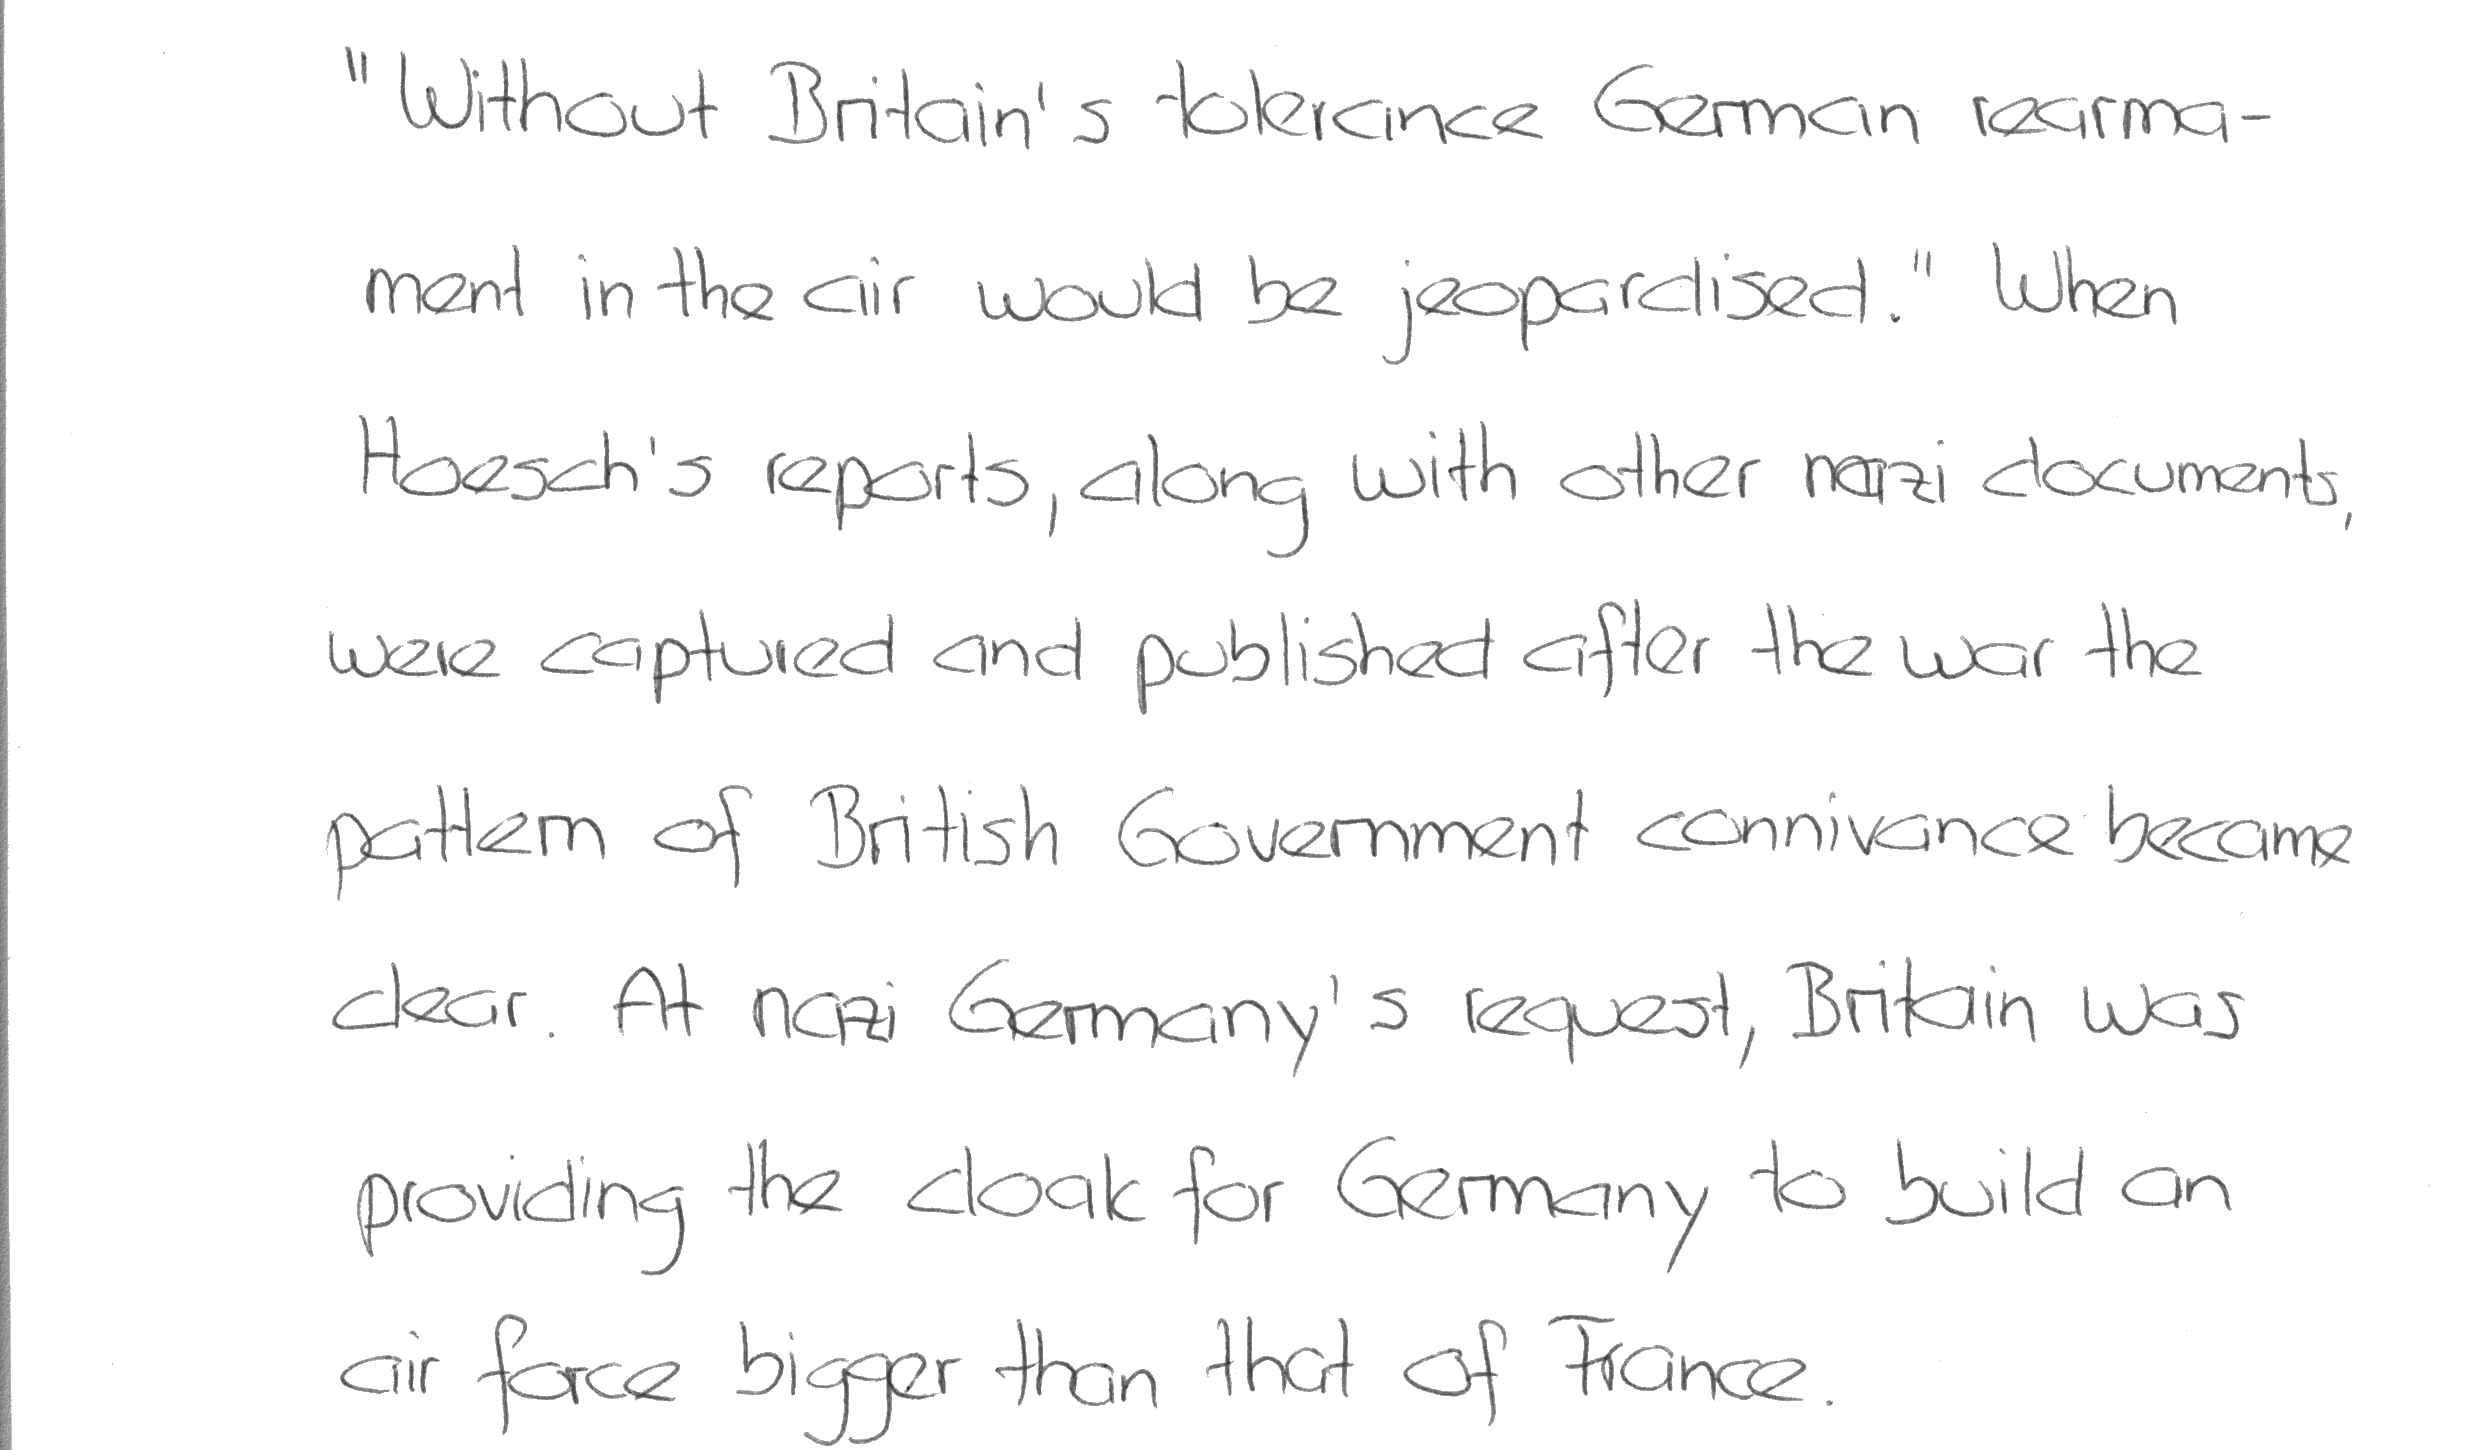 "Without Britain's tolerance German rearma-
ment in the air would be jeopardised." When
Hoesch's reports, along with other nazi documents,
were captured and published after the war the
pattern of British Government connivance became
clear. At nazi Germany's request, Britain was
providing the cloak for Germany to build an
air force bigger than that of France.